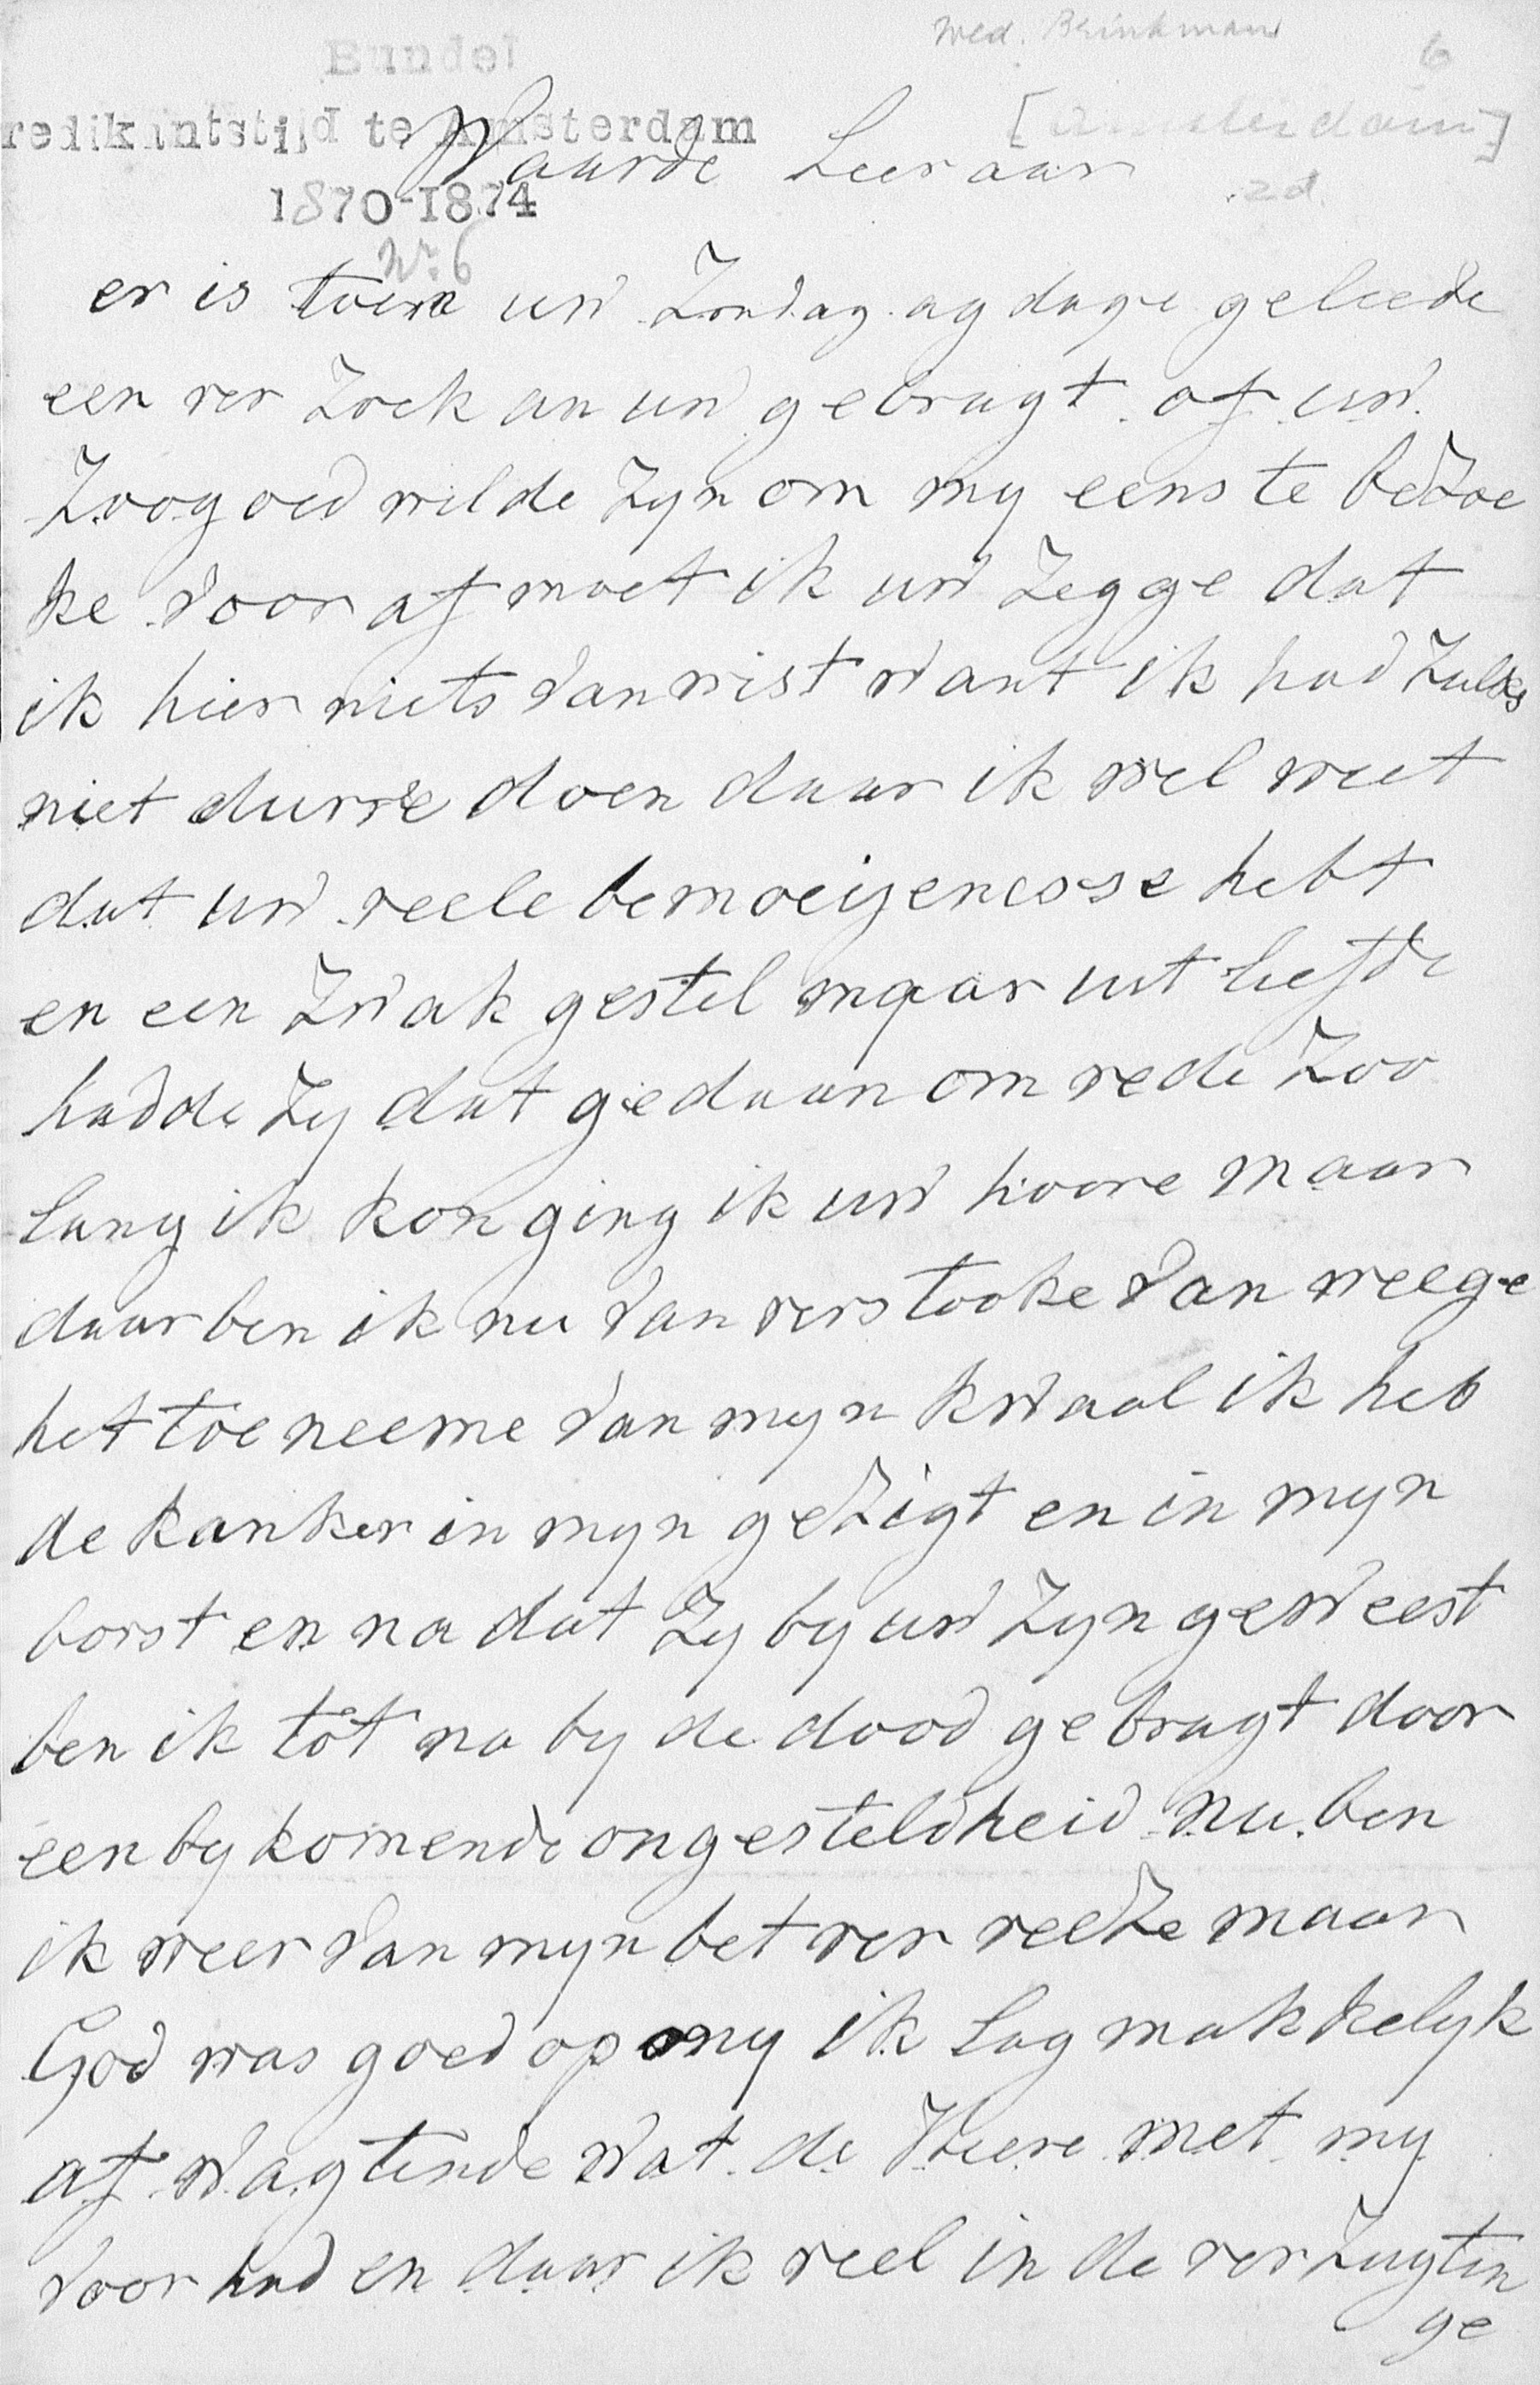 Wed. Brinkman
6
Bundel
redikantstijd te Amsterdam
[Amsterdam]
Waarde Leeraar
z d.
1870-1874
Nr. 6
er is toen uw Zondag ag dage geleede
een ver Zoek an uw gebragt of uw
Zoogoed wilde Zyn om my eens te beZoe
ke voor af moet ik uw Zegge dat
ik hier niets van wist want ik had Zulks
niet durve doen daar ik wel weet
dat uw veele bemoeijenesse hebt
en een Zwak gestel maar uit liefde
hadde Zy dat gedaan om rede Zoo
lang ik kon ging ik uw hoore maar
daar ben ik nu van verstooke van weege
het toe neeme van myn kwaal ik heb
de kanker in myn geZigt en in myn
borst en na dat Zy by uw Zyn geweest
ben ik tot na by de dood gebragt door
een by komende ongesteldheid nu ben
ik weer van myn bet ver reeZe maar
God was goed op my ik lag makkelyk
af wagtende wat de Heere met my
voor had en daar ik veel in de verZugtin
ge